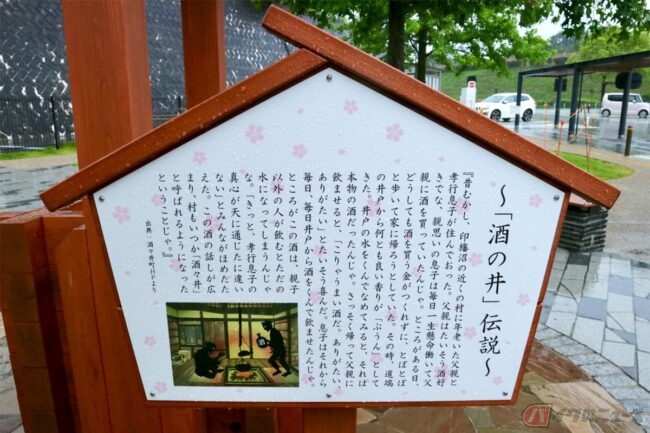 ～「酒の井」伝説～
『昔むかし、印旛沼の近くの村に年老いた父親と
孝行息子が住んでおった。父親はたいそう酒好
きでな、親思いの息子は毎日一生懸命働いて父
親に酒を買っていたんじゃ。ところがある日、
どうしても酒を買う金がつくれずに、とぼとぼ
と歩いて家に帰ろうとしていた。その時、道端
の井戸から何とも良い香りが「ぷうん」として
きた。井戸の水をくんでなめてみると、それは
本物の酒だったんじゃ。さっそく帰って父親に
飲ませると、「こりゃうまい酒だ。ありがたい、
ありがたい」とたいそう喜んだ。息子はそれから
毎日、毎日井戸から酒をくんで飲ませたんじゃ。
ところがこの酒は、親子
以外の人が飲むとただの
水になってしまうんじゃ
な。「きっと、孝行息子の
真心が天に通じたに違い
ない」とみんながほめたた
えた。この酒の話しが広
まり、村もいつか「酒々井」
と呼ばれるようになった
ということじゃ。』
出典：酒々井町HPより
バイクのニュース